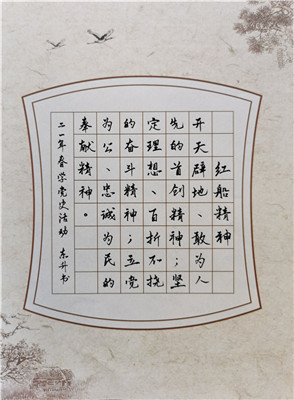 红船精神
开天辟地、敢为人
先的首创精神；坚
定理想、百折不挠
的奋斗精神；立党
为公、忠诚为民的
奉献精神。
二一年春学党史活动 东升书